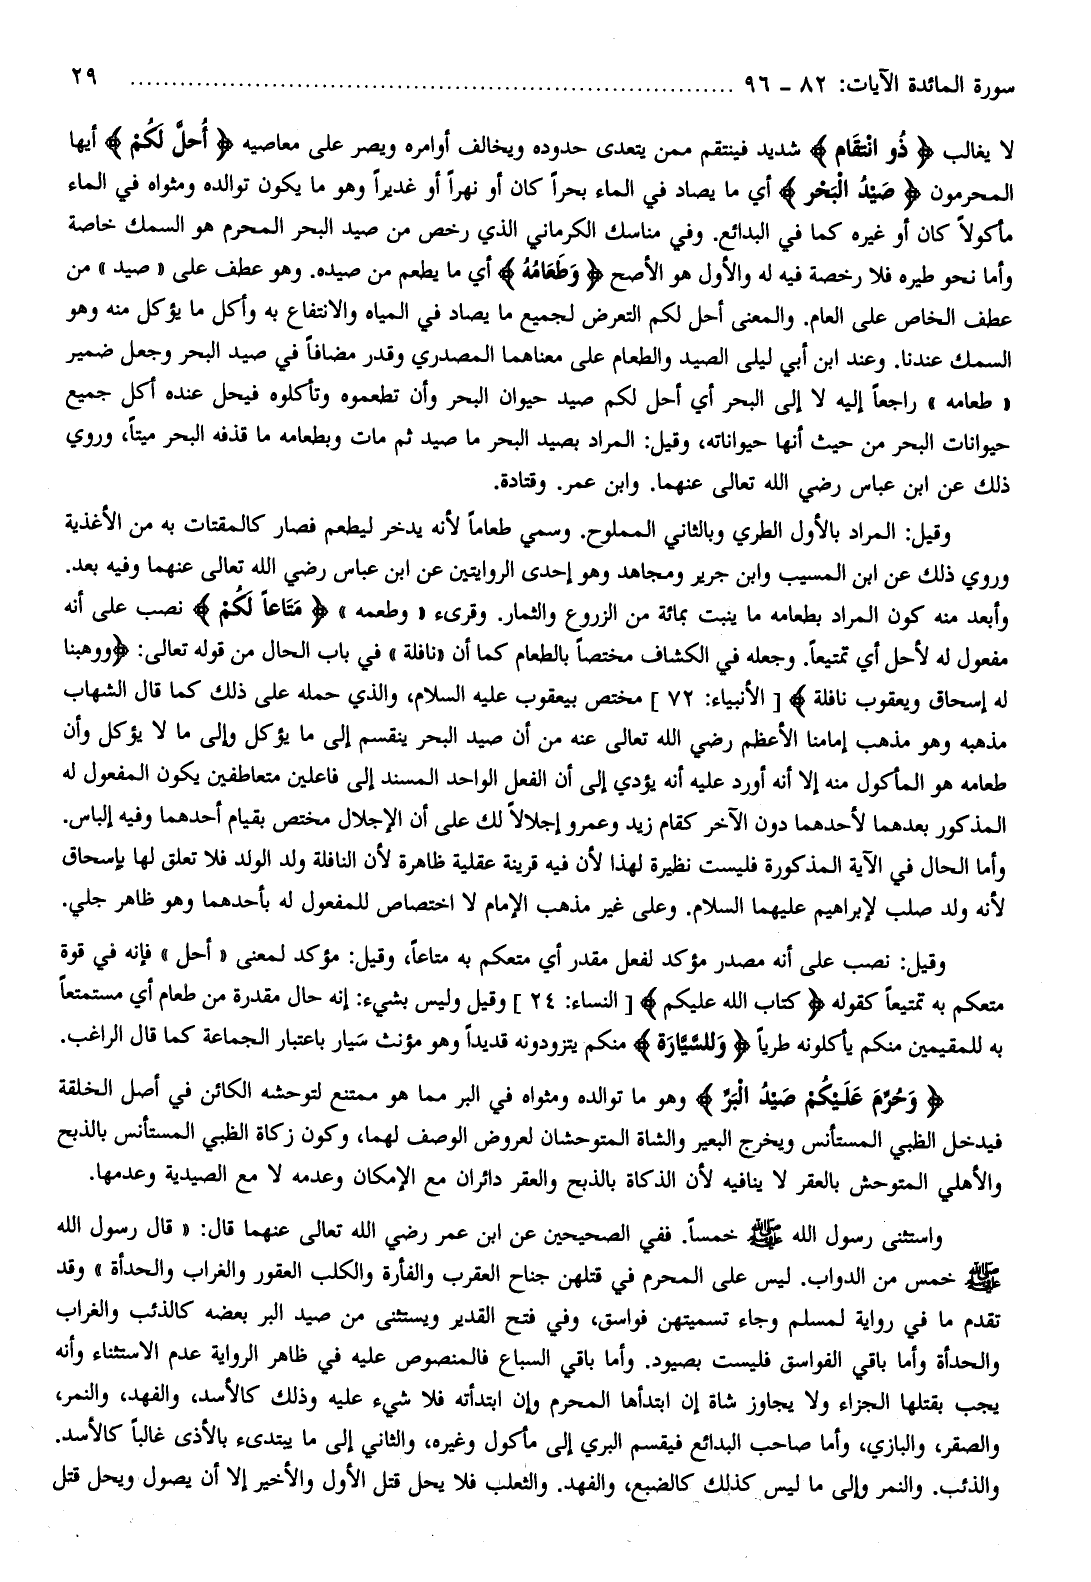 سورة المائدة الآيات: ٨٢ - ٩٦ ........................................................................ ٢٩
لا يغالب ﴿ ذُو انْتقَام ﴾ شديد فينتقم ممن يتعدى حدوده ويخالف أوامره ويصر على معاصيه ﴿ أُحلَّ لَكُمْ ﴾ أيها
المحرمون ﴿ صَيْدُ الْبَحْر ﴾ أي ما يصاد في الماء بحراً كان أو نهراً أو غديراً وهو ما يكون توالده ومثواه في الماء
مأكولاً كان أو غيره كما في البدائع. وفي مناسك الكرماني الذي رخص من صيد البحر المحرم هو السمك خاصة
وأما نحو طيره فلا رخصة فيه له والأول هو الأصح ﴿ وَطَعَامُهُ ﴾ أي ما يطعم من صيده. وهو عطف على « صيد » من
عطف الخاص على العام. والمعنى أحل لكم التعرض لجميع ما يصاد في المياه والانتفاع به وأكل ما يؤكل منه وهو
السمك عندنا. وعند ابن أبي ليلى الصيد والطعام على معناهما المصدري وقدر مضافاً في صيد البحر وجعل ضمير
« طعامه » راجعاً إليه لا إلى البحر أي أحل لكم صيد حيوان البحر وأن تطعموه وتأكلوه فيحل عنده أكل جميع
حيوانات البحر من حيث أنها حيواناته، وقيل: المراد بصيد البحر ما صيد ثم مات وبطعامه ما قذفه البحر ميتاً، وروي
ذلك عن ابن عباس رضي الله تعالى عنهما. وابن عمر. وقتادة.
وقيل: المراد بالأول الطري وبالثاني المملوح. وسمي طعاماً لأنه يدخر ليطعم فصار كالمقتات به من الأغذية
وروي ذلك عن ابن المسيب وابن جرير ومجاهد وهو إحدى الروايتين عن ابن عباس رضي الله تعالى عنهما وفيه بعد.
وأبعد منه كون المراد بطعامه ما ينبت بمائة من الزروع والثمار. وقرىء « وطعمه » ﴿ مَتَاعاً لَكُمْ ﴾ نصب على أنه
مفعول له لأحل أي تمتيعاً. وجعله في الكشاف مختصاً بالطعام كما أن «نافلة » في باب الحال من قوله تعالى: ﴿ووهبنا
له إسحاق ويعقوب نافلة ﴾ [ الأنبياء: ٧٢ ] مختص بيعقوب عليه السلام، والذي حمله على ذلك كما قال الشهاب
مذهبه وهو مذهب إمامنا الأعظم رضي الله تعالى عنه من أن صيد البحر ينقسم إلى ما يؤكل وإلى ما لا يؤكل وأن
طعامه هو المأكول منه إلا أنه أورد عليه أنه يؤدي إلى أن الفعل الواحد المسند إلى فاعلين متعاطفين يكون المفعول له
المذكور بعدهما لأحدهما دون الآخر كقام زيد وعمرو إجلالاً لك على أن الإجلال مختص بقيام أحدهما وفيه إلباس.
وأما الحال في الآية المذكورة فليست نظيرة لهذا لأن فيه قرينة عقلية ظاهرة لأن النافلة ولد الولد فلا تعلق لها بإسحاق
لأنه ولد صلب لإبراهيم عليهما السلام. وعلى غير مذهب الإمام لا اختصاص للمفعول له بأحدهما وهو ظاهر جلي.
وقيل: نصب على أنه مصدر مؤكد لفعل مقدر أي متعكم به متاعاً، وقيل: مؤكد لمعنى « أحل » فإنه في قوة
متعكم به تمتيعاً كقوله ﴿ كتاب الله عليكم ﴾ [ النساء: ٢٤ ] وقيل وليس بشيء: إنه حال مقدرة من طعام أي مستمتعاً
به للمقيمين منكم يأكلونه طرياً ﴿ وَللسَّيَّارَة ﴾ منكم يتزودونه قديداً وهو مؤنث سَيار باعتبار الجماعة كما قال الراغب.
﴿ وَحُرِّمَ عَلَيْكُمْ صَيْدُ الْبَرِّ ﴾ وهو ما توالده ومثواه في البر مما هو ممتنع لتوحشه الكائن في أصل الخلقة
فيدخل الظبي المستأنس ويخرج البعير والشاة المتوحشان لعروض الوصف لهما، وكون زكاة الظبي المستأنس بالذبح
والأهلي المتوحش بالعقر لا ينافيه لأن الذكاة بالذبح والعقر دائران مع الإمكان وعدمه لا مع الصيدية وعدمها.
واستثنى رسول الله ﷺ خمساً. ففي الصحيحين عن ابن عمر رضي الله تعالى عنهما قال: « قال رسول الله
ﷺ خمس من الدواب. ليس على المحرم في قتلهن جناح العقرب والفأرة والكلب العقور والغراب والحدأة » وقد
تقدم ما في رواية لمسلم وجاء تسميتهن فواسق، وفي فتح القدير ويستثنى من صيد البر بعضه كالذئب والغراب
والحدأة وأما باقي الفواسق فليست بصيود. وأما باقي السباع فالمنصوص عليه في ظاهر الرواية عدم الاستثناء وأنه
يجب بقتلها الجزاء ولا يجاوز شاة إن ابتدأها المحرم وإن ابتدأته فلا شيء عليه وذلك كالأسد، والفهد، والنمر،
والصقر، والبازي، وأما صاحب البدائع فيقسم البري إلى مأكول وغيره، والثاني إلى ما يبتدىء بالأذى غالباً كالأسد.
والذئب. والنمر وإلى ما ليس كذلك كالضبع، والفهد. والثعلب فلا يحل قتل الأول والأخير إلا أن يصول ويحل قتل